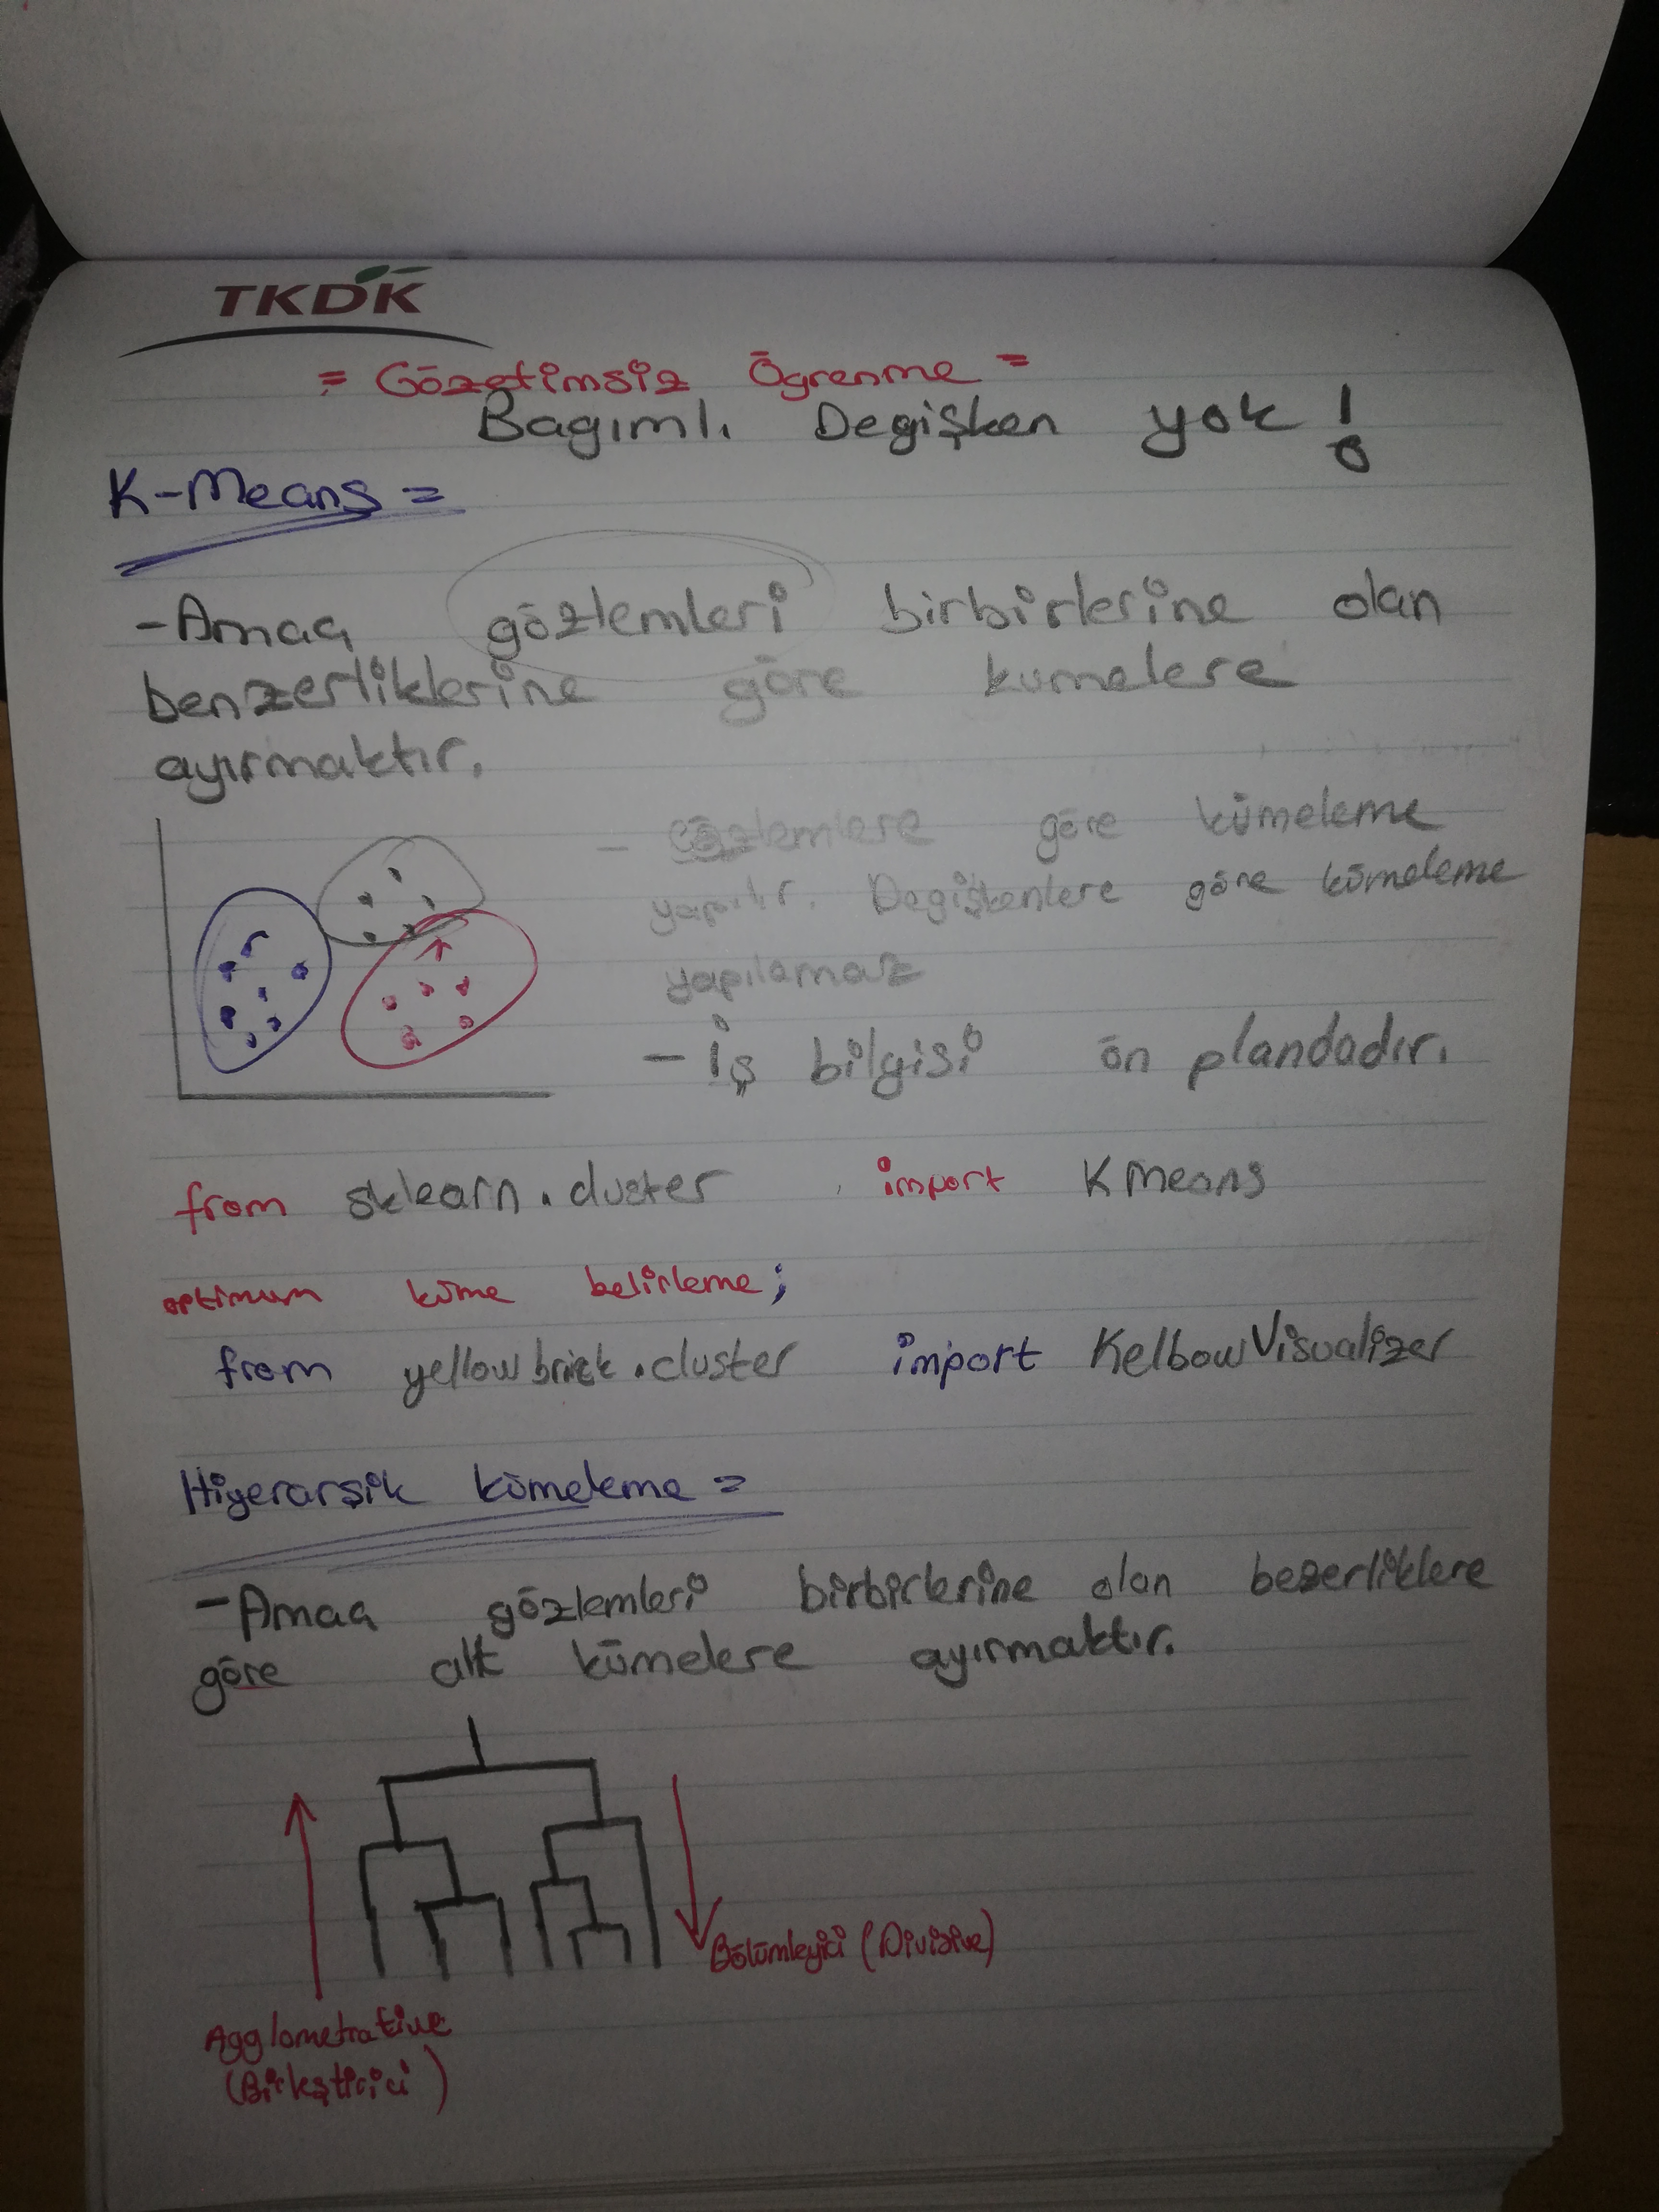 TKDK
= Gözetimsiz Ögrenme =
Bagımlı Degişken yok !
K-Means =
-Amaç gözlemleri birbirlerine olan
benzerliklerine göre kumelere
ayırmaktır.
- Gözlemlere göre kümeleme
yapılır. Degişkenlere göre kümeleme
yapılamaz
- İş bilgisi ön plandadır.
from sklearn.cluster import KMeans
optimum küme belirleme;
from yellowbrick.cluster import KelbowVisualizer
Hiyerarşik kümeleme =
-Amaç gözlemleri birbirlerine olan bezerliklere
göre alt kümelere ayırmaktır.
Bölümleyici (Divisive)
Agglometrative
(Birleştirici)